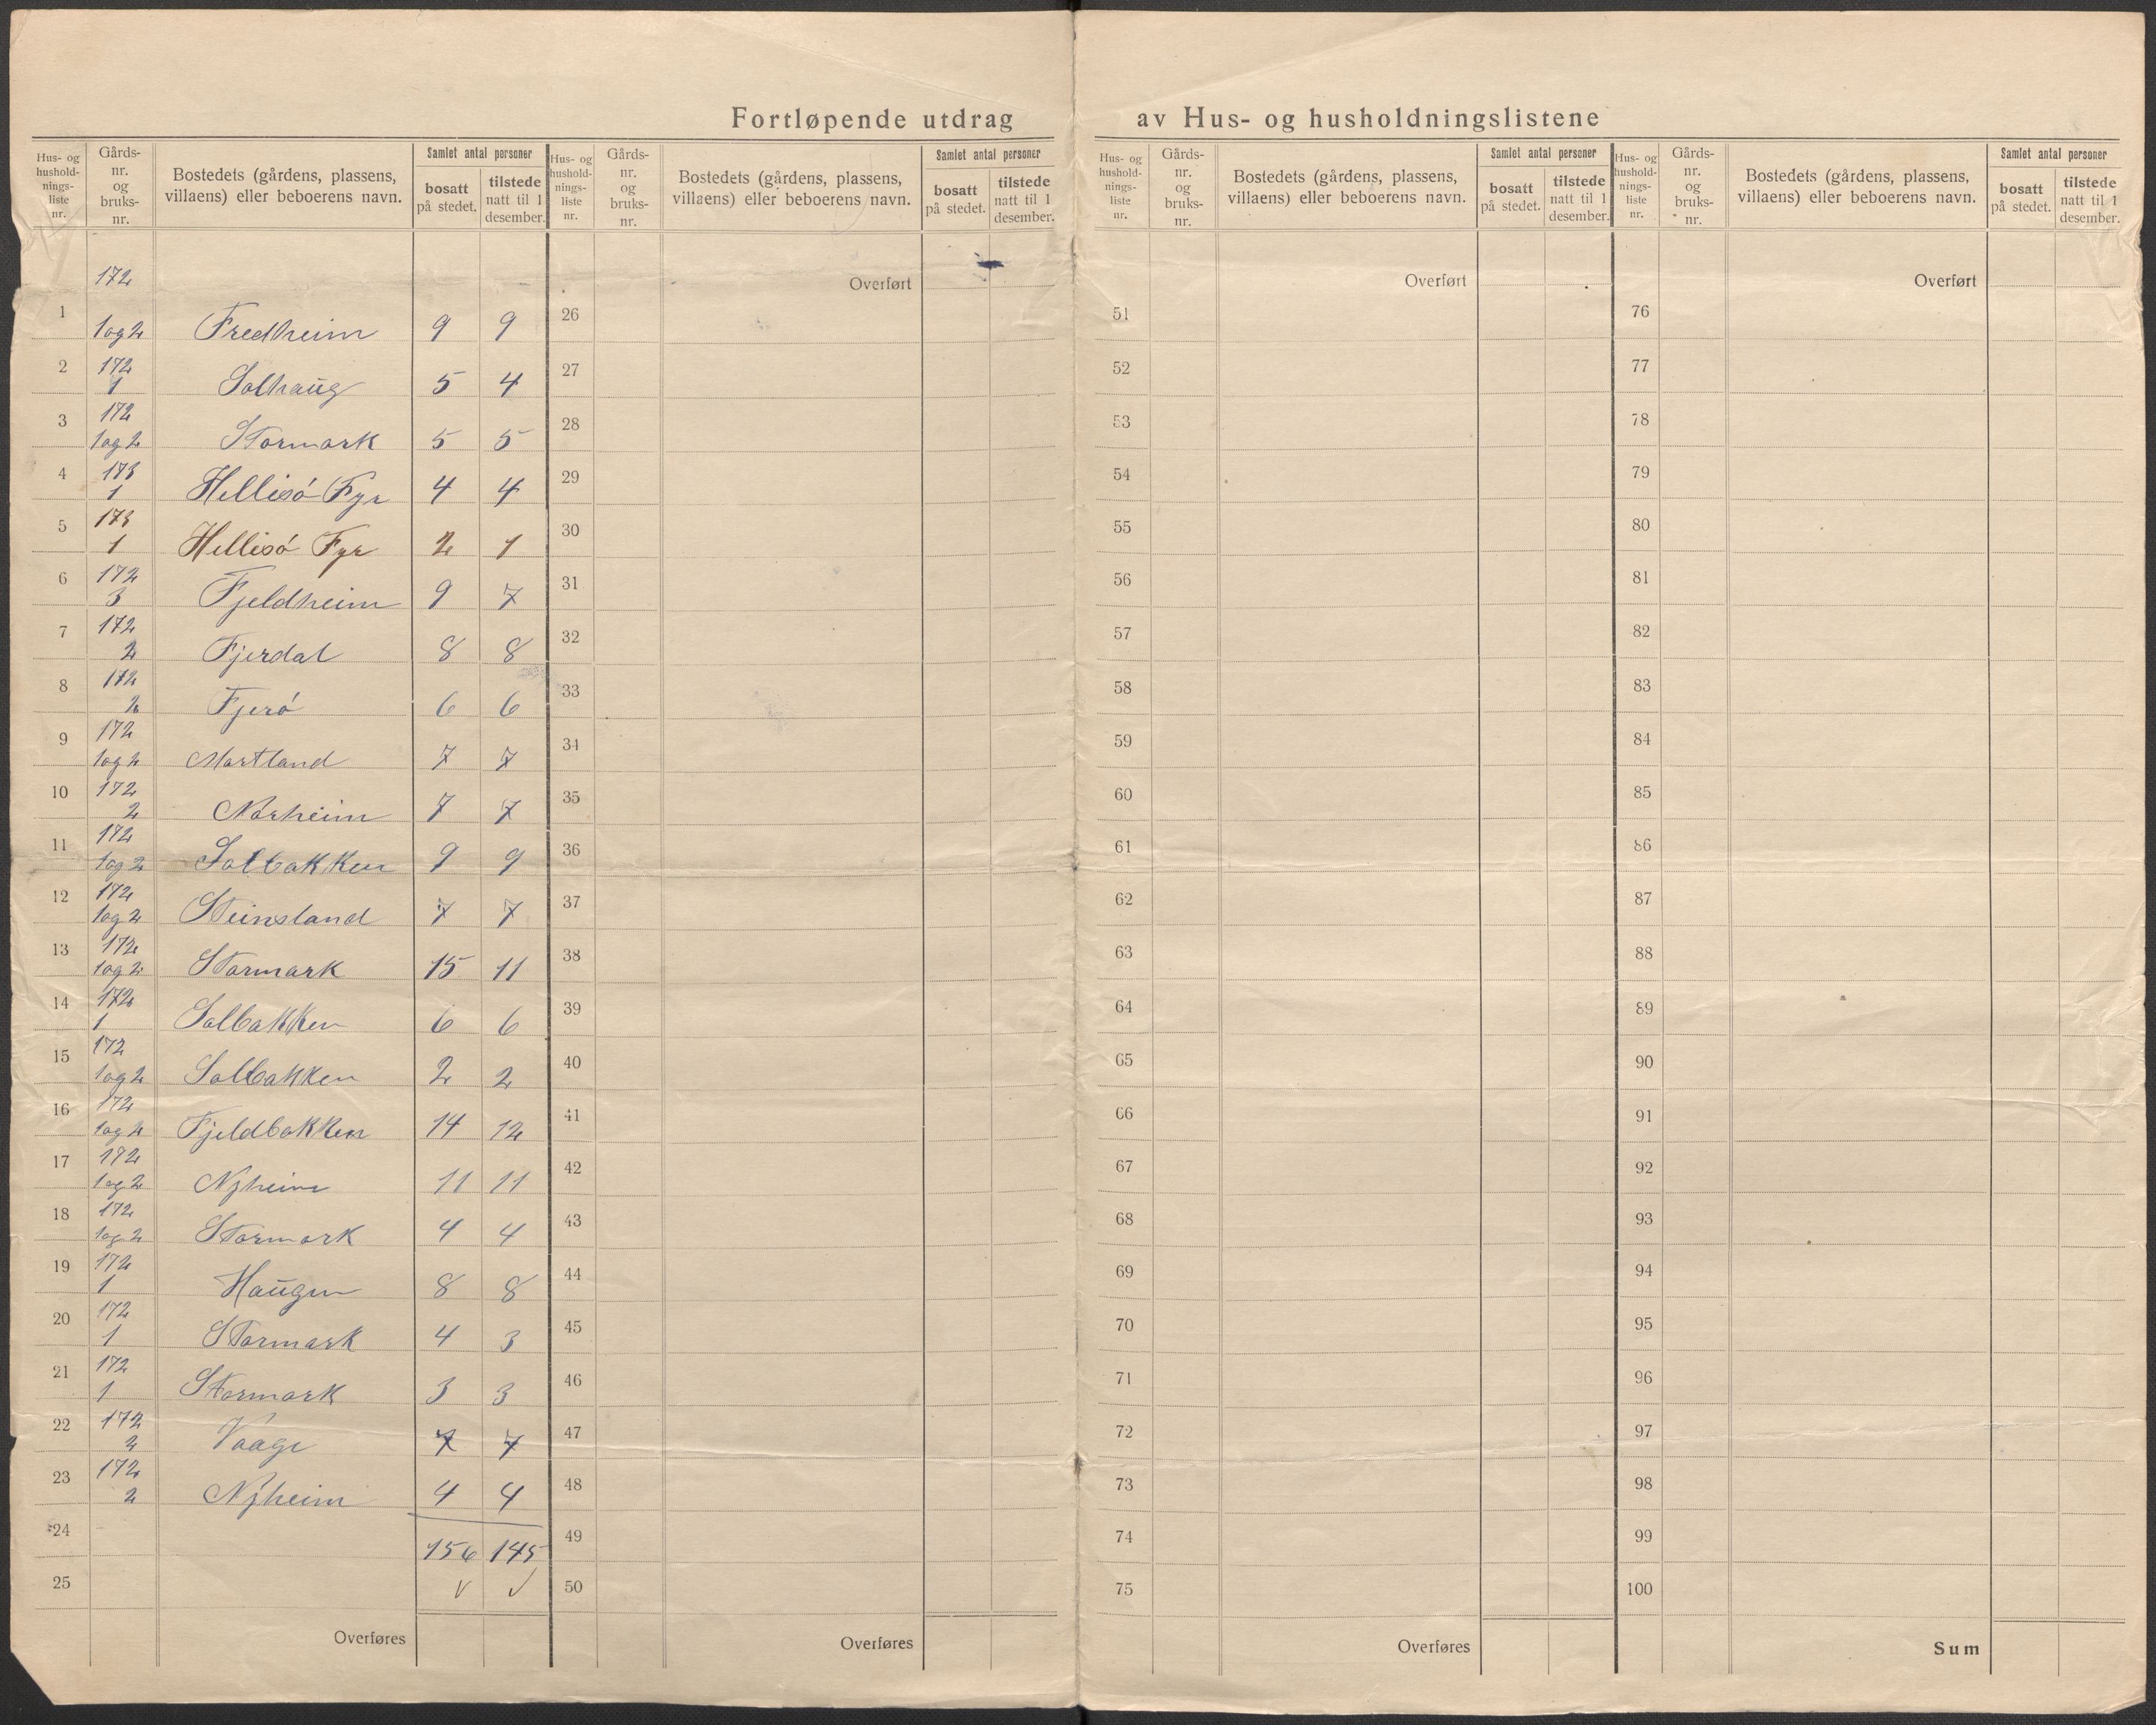 Fortløpende utdrag av Hus- og husholdningslistene
Hus- og husholdningsliste nr. | Gårds-nr. og bruks-nr. | Bostedets (gårdens, plassens, villaens) eller beboerens navn. | Samlet antal personer bosatt på stedet. | tilstede natt til 1 desember.
Hus- og husholdningsliste nr. | Gårds-nr. og bruks-nr. | Bostedets (gårdens, plassens, villaens) eller beboerens navn. | Samlet antal personer bosatt på stedet. | tilstede natt til 1 desember.
Hus- og husholdningsliste nr. | Gårds-nr. og bruks-nr. | Bostedets (gårdens, plassens, villaens) eller beboerens navn. | Samlet antal personer bosatt på stedet. | tilstede natt til 1 desember.
Hus- og husholdningsliste nr. | Gårds-nr. og bruks-nr. | Bostedets (gårdens, plassens, villaens) eller beboerens navn. | Samlet antal personer bosatt på stedet. | tilstede natt til 1 desember.
1 172 1 og 2 Fredheim 9 9
2 172 1 Solhaug 5 4
3 172 1 og 2 Stormark 5 5
4 173 1 Hellisó Fyr 4 4
5 173 1 Hellisó Fyr 2 1
6 172 3 Fjeldheim 9 7
7 172 2 Fjerdal 8 8
8 172 2 Fjeró 6 6
9 172 1 og 2 Martland 7 7
10 172 2 Norheim 7 7
11 172 1 og 2 Solbakken 9 9
12 172 1 og 2 Steinsland 7 7
13 172 1 og 2 Stormark 15 11
14 172 1 Solbakken 6 6
15 172 1 og 2 Solbakken 2 2
16 172 1 og 2 Fjeldbakken 14 12
17 172 1 og 2 Nyheim 11 11
18 172 1 og 2 Stormark 4 4
19 172 1 Haugen 8 8
20 172 1 Stormark 4 3
21 172 1 Stormark 3 3
22 172 2 Vaage 7 7
23 172 2 Nyheim 4 4
24 156 145
25 √ √
Overføres
Overført
26
27
28
29
30
31
32
33
34
35
36
37
38
39
40
41
42
43
44
45
46
47
48
49
50
Overføres
Overført
51
52
53
54
55
56
57
58
59
60
61
62
63
64
65
66
67
68
69
70
71
72
73
74
75
Overføres
Overført
76
77
78
79
80
81
82
83
84
85
86
87
88
89
90
91
92
93
94
95
96
97
98
99
100
Sum